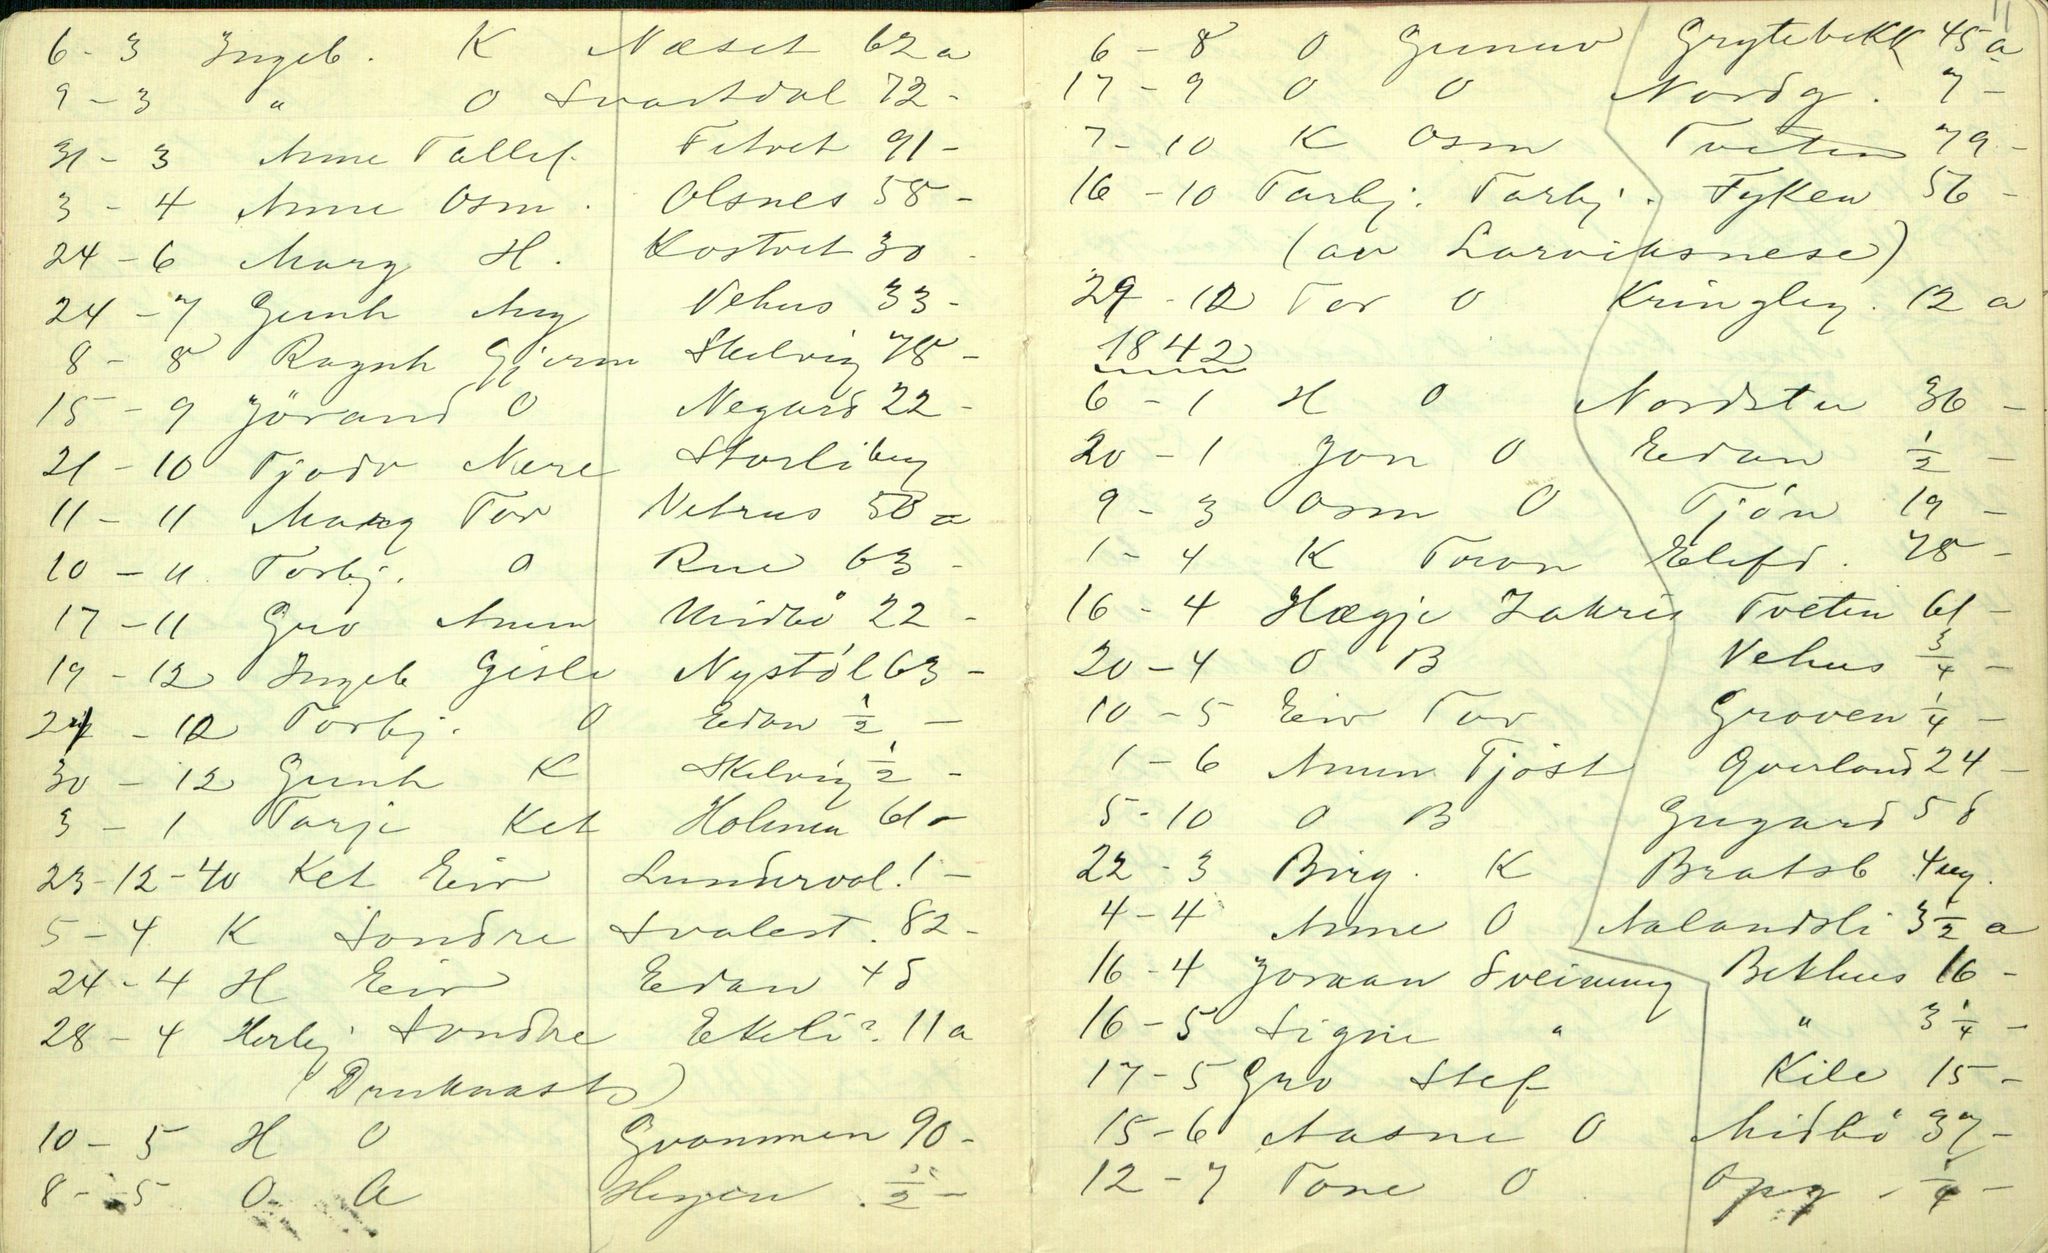 6 - 3 Ingeb. K Næset 62 a
9 - 3 " O Svartdal 72 -
31 - 3 Anne Tallef. Fitvet 91 -
3 - 4 Anne Osm. Olsnes 58 -
24 - 6 Marg H. Kostvet 30 -
24 - 7 Gunh Aug Vehus 33 -
8 - 8 Ragnh Gjerm Skelvig 78 -
15 - 9 Jörand O Negard 22 -
21 - 10 Tjodv Nere Storliberg
11 - 11 Marg Tor Vetrus 58 a
10 - 11 Torbj. O Rue 63 -
17 - 11 Gro Anun Midbö 22 -
19 - 12 Ingeb Gisle Nystöl 63 -
24 - 12 Torbj. O Edan 1/2 -
30 - 12 Gunh K Skelvig 1/2 -
3 - 1 Tarje Ket Holmen 61 -
23-12-40 Ket Eiv Lunderval. 1 -
5 - 4 K Sondre Svalest. 82 -
24 - 4 H Eiv Edan 48
28 - 4 Herbj Sondre Ekeli? 11 a
(Druknast)
10 - 5 H O Gvammen 90 -
8 - 5 O A Heggen . 1/2 -
11
6 - 8 O Gunnv Grytebekk 45 a
17 - 9 O O Nordg. 7 -
7 - 10 K Osm Tveten 79 -
16 - 10 Tarbj. Tarbj. Fyken 56 -
(av Larviksnese)
29 - 12 Tor O Kringleg. 12 a
1842
6 - 1 H O Nordstu 36 -
20 - 1 Jon O Edan 1/2 -
9 - 3 Osm O Tjön 19 -
1 - 4 K Toron Elefd. 78 -
16 - 4 Hægje Zakris Tveten 61 -
20 - 4 O B Vehus 3/4 -
10 - 5 Eiv Tov Groven 1/4 -
1 - 6 Anun Tjöst Qverland 24 -
5 - 10 O B Gugard 58
22 - 3 Birg. K Bratsb 4 ug.
4 - 4 Anne O Aalandsli 3 1/2 a
16 - 4 Joraan Sveinung Bekhus 16 -
16 - 5 Signe " " 3 1/4 -
17 - 5 Gro Stef Kile 15 -
15 - 6 Aasne O Midbö 37 -
12 - 7 Tone O Opg - 1/4 -